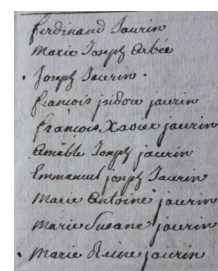 ferdinand Jaurin
Marie Joseph Cabée
Joseph Jaurin.
francois jsidore jaurin
francois Xavier jaurin
amable Joseph jaurin
Emmanuel joseph Jaurin
Marie antoine jaurin
marie Susane jaurin
Marie Reine jaurin